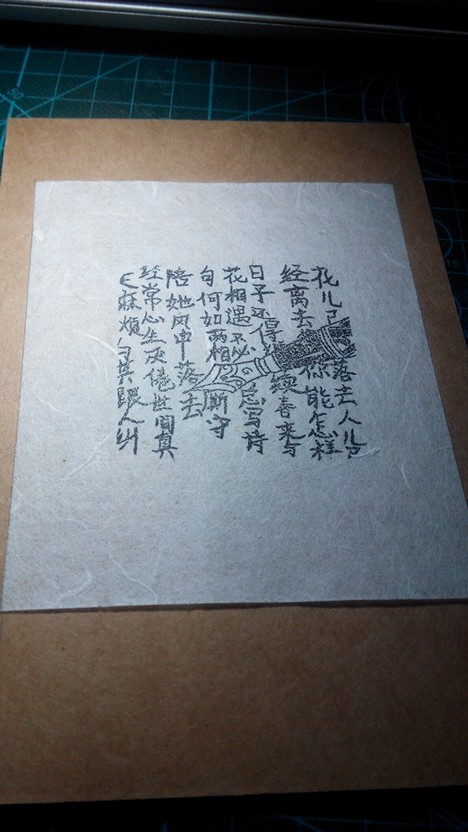 花儿已落去人儿已
经离去你能怎样
日子还得继续春来与
花相遇不必急写诗
句何如两相厮守
陪她风中落去
经常心生灰倦世间真
麻烦 其跟人纠